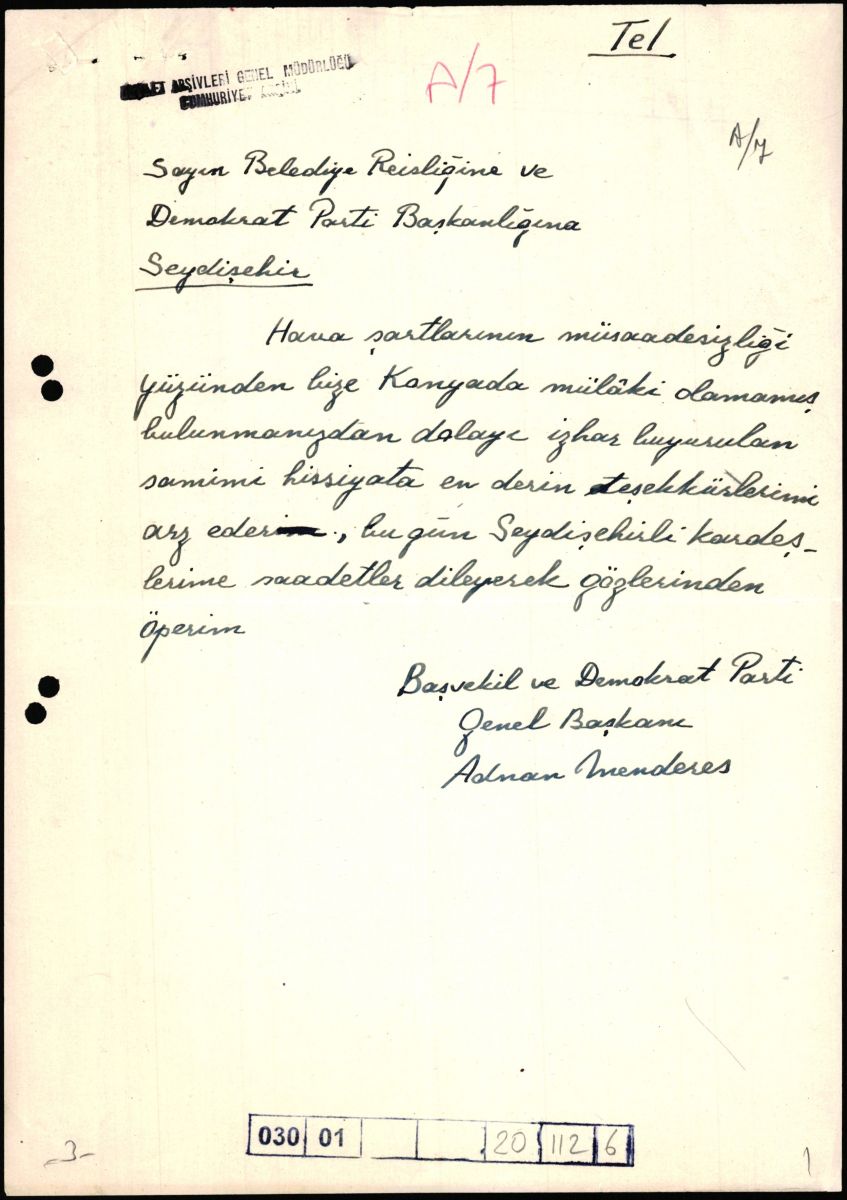 Tel
DEVLET ARŞİVLERİ GENEL MÜDÜRLÜĞÜ
CUMHURİYET ARŞİVİ
A/7
A/7
Sayın Belediye Reisliğine ve
Demokrat Parti Başkanlığına
Seydişehir
Hava şartlarının müsaadesizliği
yüzünden bize Konyada mülâki olamamış
bulunmanızdan dolayı izhar buyurulan
samimi hissiyata en derin teşekkürlerimi
arz ederim, bu gün Seydişehirli kardeş-
lerime saadetler dileyerek gözlerinden
öperim
Başvekil ve Demokrat Parti
Genel Başkanı
Adnan Menderes
030 01 20 112 6
-3-
1